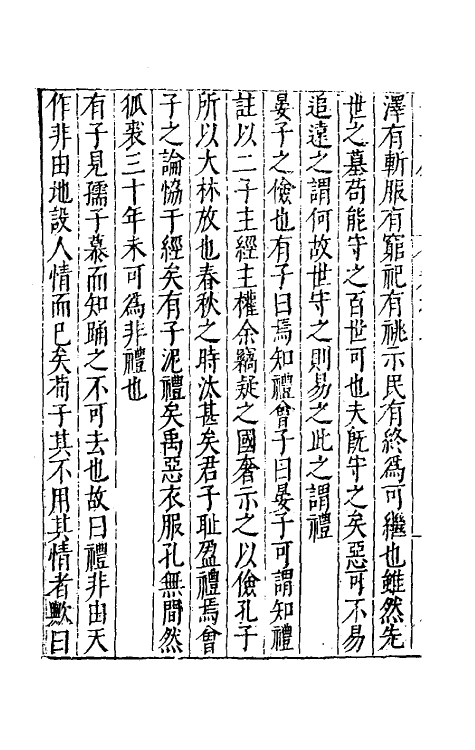 澤有斬服有窮祀有祧示民有終爲可繼也雖然先
世之墓苟能守之百世可也夫旣守之矣惡可不易
追遠之謂何故世守之則易之此之謂禮
晏子之儉也有子曰焉知禮曾子曰晏子可謂知禮
註以二子主經主權余竊疑之國奢示之以儉孔子
所以大林放也春秋之時汰甚矣君子耻盈禮焉曾
子之論恊于經矣有子泥禮矣禹惡衣服孔無間然
狐裘三十年未可為非禮也
有子見孺子慕而知踊之不可去也故曰禮非由天
作非由地設人情而已矣荀子其不用其情者歟曰